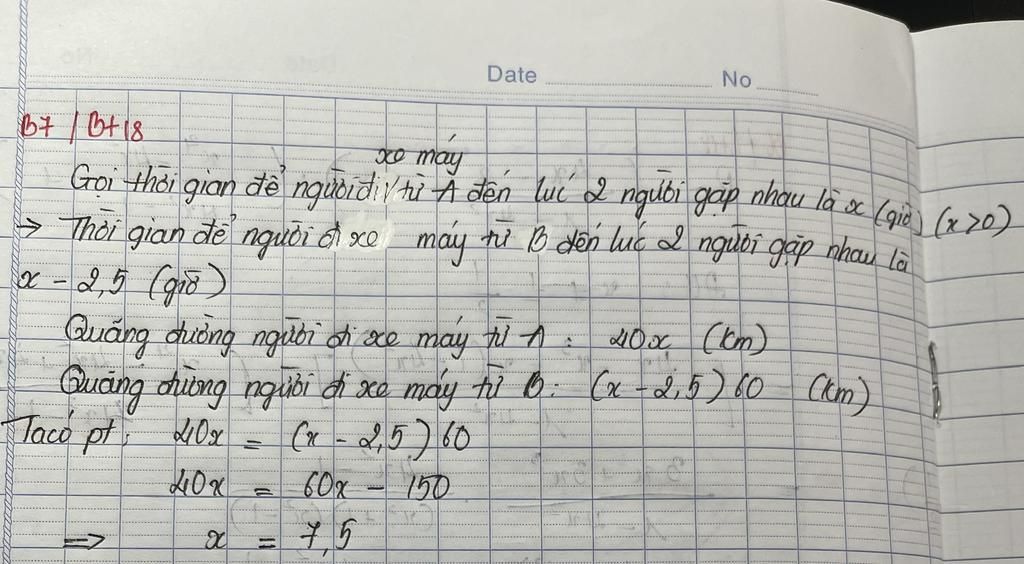 Date No
B7 / Bt18
xe máy
Gọi thời gian để người đi từ A đến lúc 2 người gặp nhau là x (giờ) (x>0)
→ Thời gian để người đi xe máy từ B đến lúc 2 người gặp nhau là
x - 2,5 (giờ)
Quãng đường người đi xe máy từ A : 40x (km)
Quãng đường người đi xe máy từ B : (x - 2,5) 60 (km)
Ta có pt : 40x = (x - 2,5) 60
40x = 60x - 150
=> x = 7,5